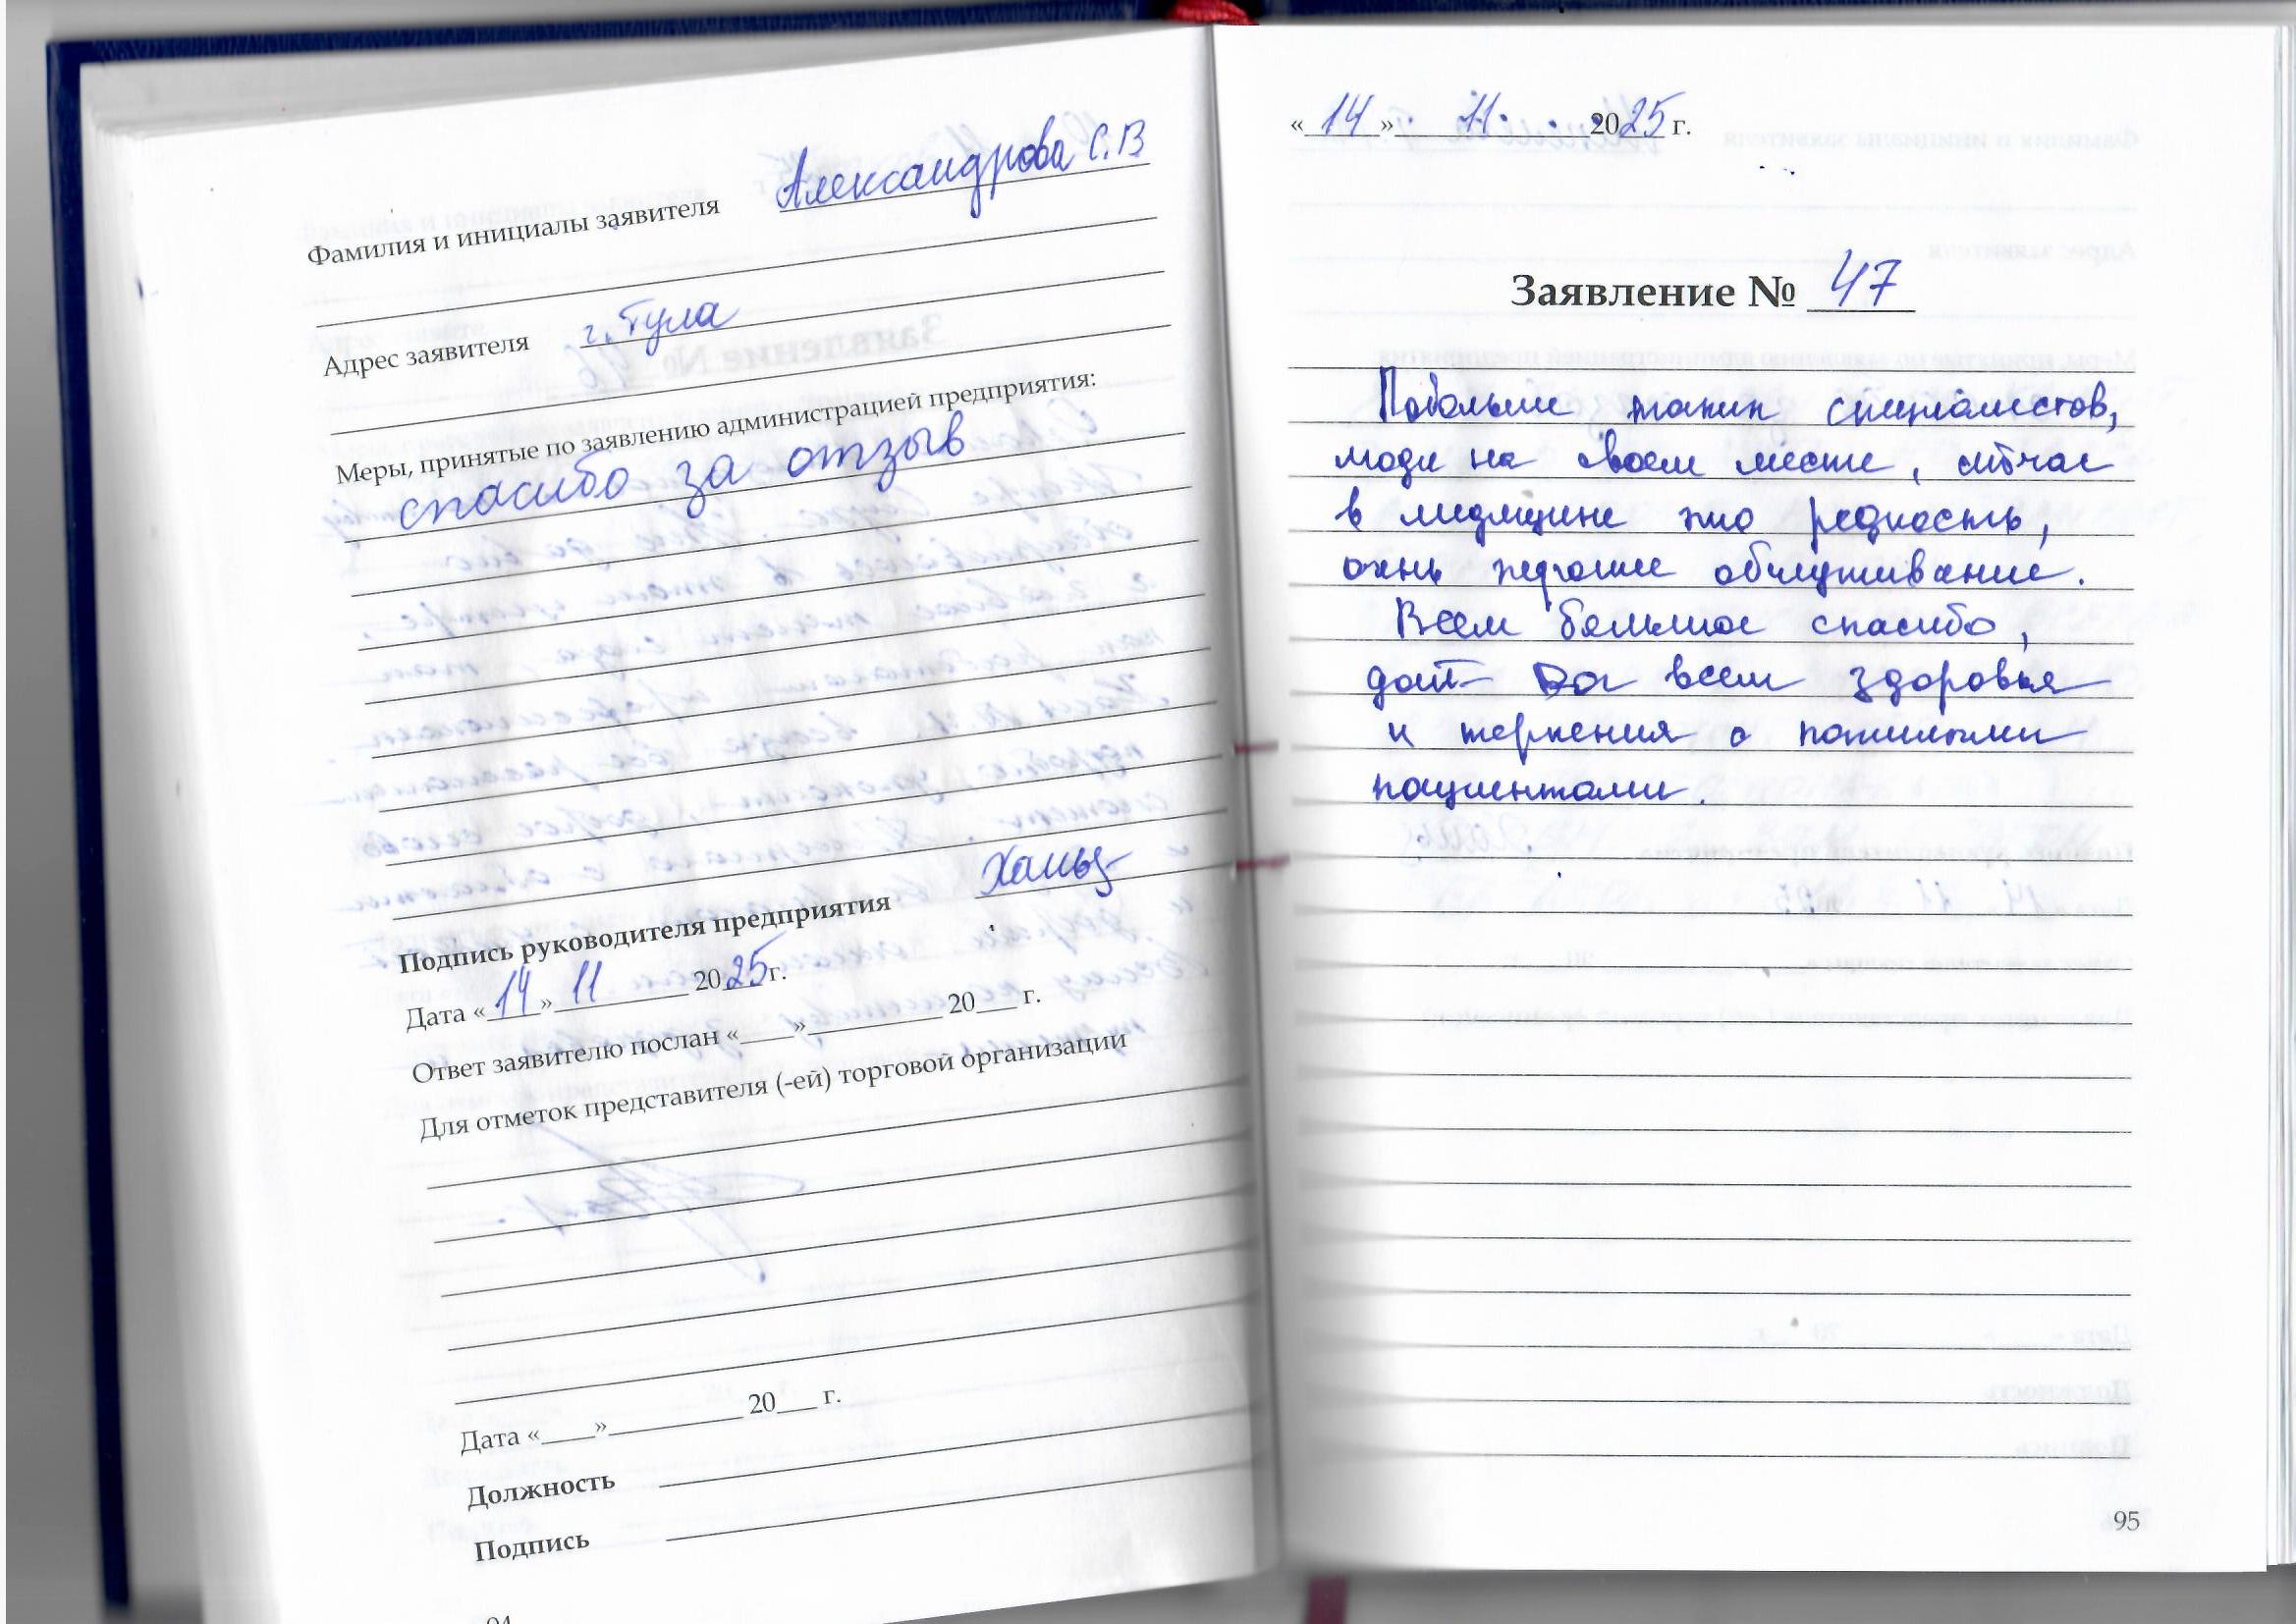 Фамилия и инициалы заявителя Александрова С.В
Адрес заявителя г. Тула
Меры, принятые по заявлению администрацией предприятия:
спасибо за отзыв
Подпись руководителя предприятия
Дата «14» 11 2025г.
Ответ заявителю послан «____»__________ 20___ г.
Для отметок представителя (-ей) торговой организации
Дата «____»__________ 20___ г.
Должность
Подпись
94
«14» 11. 2025 г.
Заявление № 47
Побольше таких специалистов,
люди на своем месте, сейчас
в медицине это редкость,
очень хорошее обслуживание.
Всем большое спасибо,
дай Бог всем здоровья
и терпения с пожилыми
пациентами.
95